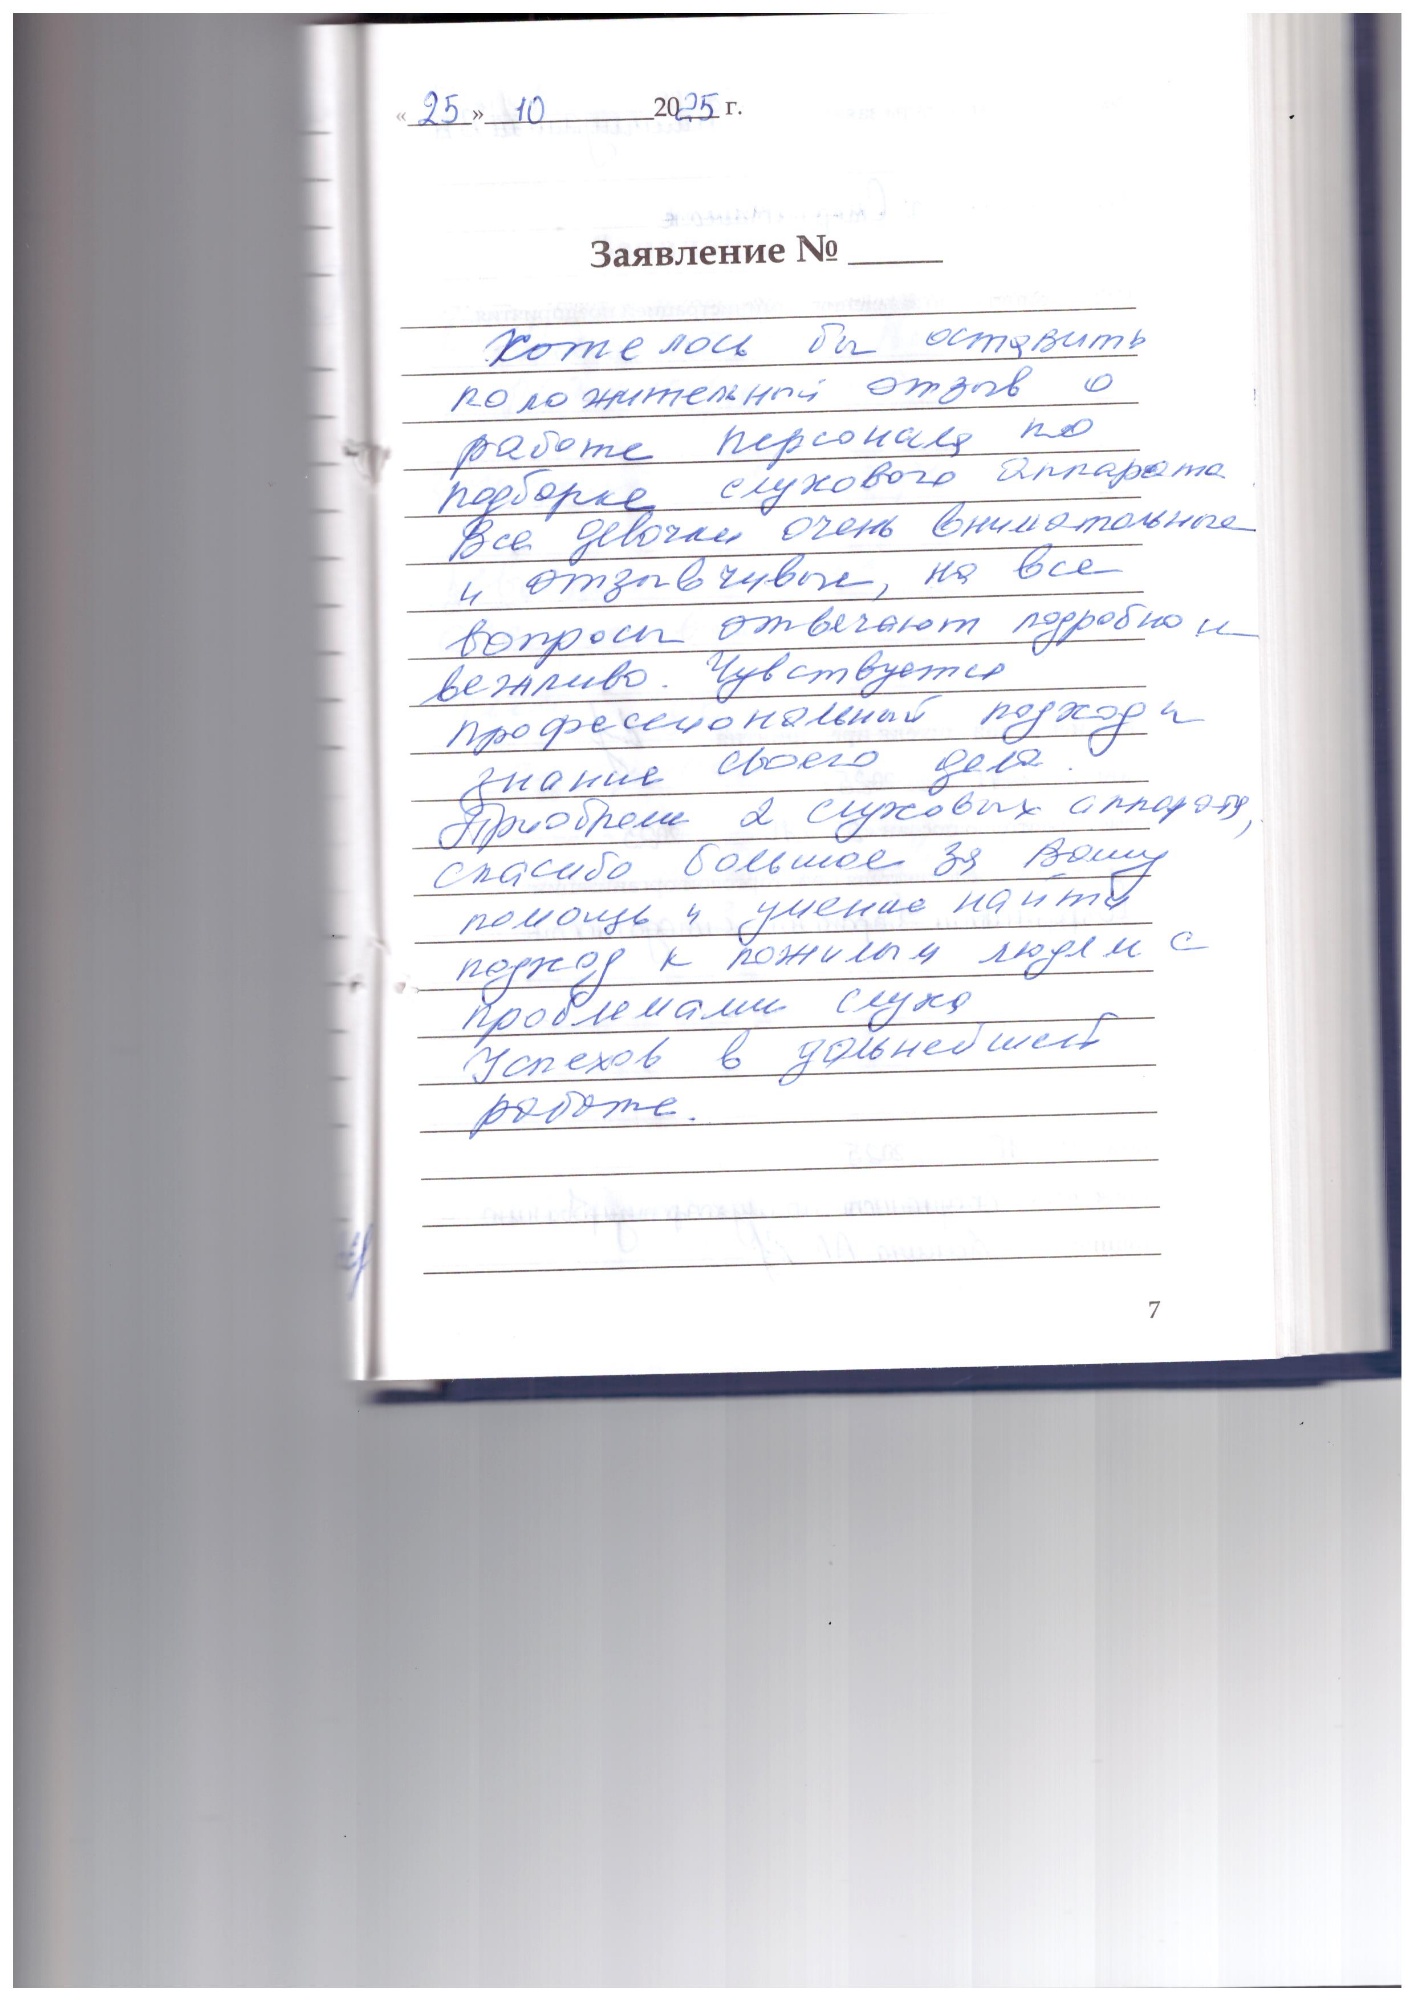 «25» 10 2025 г.
Заявление № _____
Хотелось бы оставить
положительный отзыв о
работе персонала по
подборке слухового аппарата.
Все девочки очень внимательные
и отзывчивые, на все
вопросы отвечают подробно и
вежливо. Чувствуется
профессиональный подход и
знание своего дела.
Приобрели 2 слуховых аппарата,
спасибо большое за Вашу
помощь и умение найти
подход к пожилым людям с
проблемами слуха
Успехов в дальнейшей
работе.
7